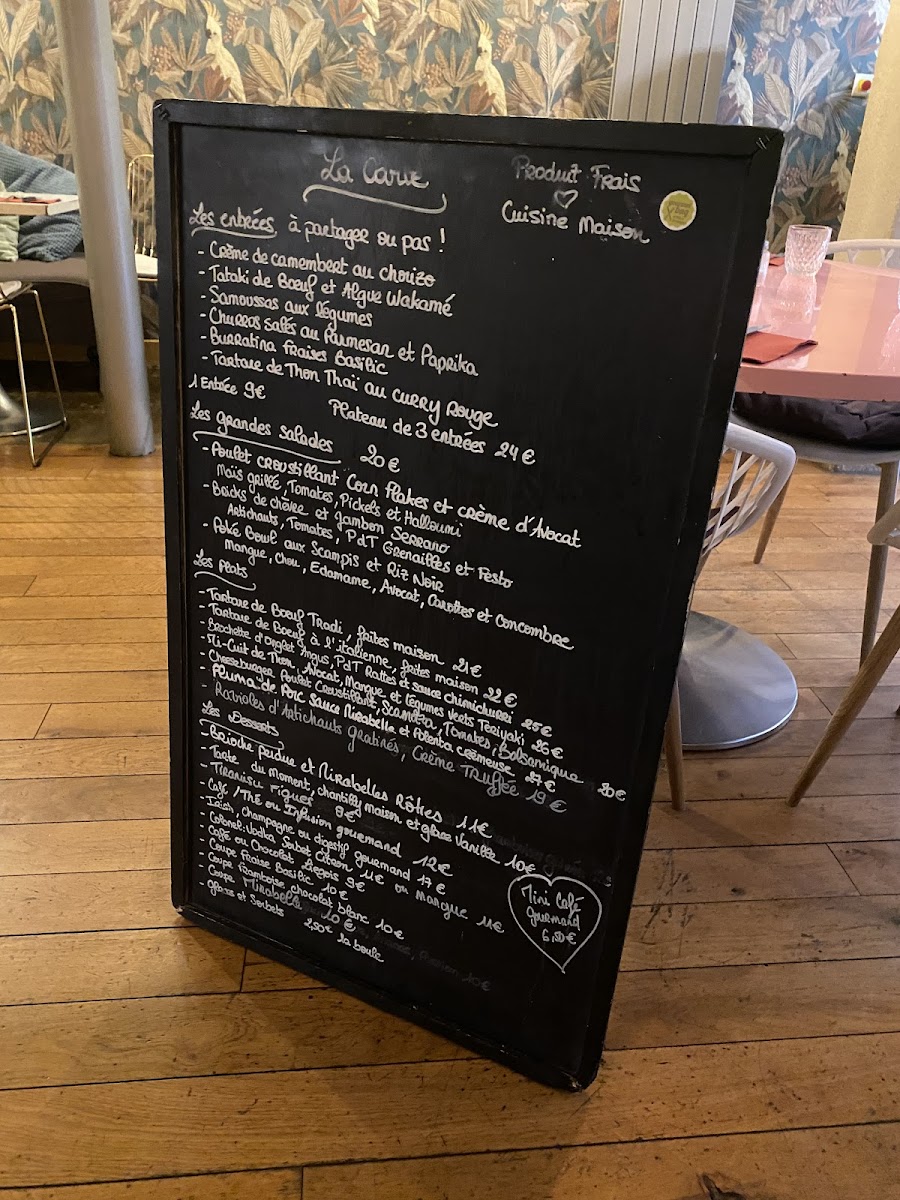 La Carte
Produit Frais
Cuisine Maison
Les entrées, à partager ou pas !
- Crème de camembert au chorizo
- Tataki de Bœuf et Algue Wakamé
- Samoussas aux légumes
- Churros salés au Parmesan et Paprika
- Burratina fraises Basilic
- Tartare de Thon Thaï au curry Rouge
1 Entrée 9€
Plateau de 3 entrées 24€
Les grandes salades 20€
- Poulet croustillant Corn Flakes et crème d'Avocat
Maïs grillé, Tomates, Pickels et Halloumi
- Bricks de chèvre et Jambon Serrano
Artichauts, Tomates, PdT Grenailles et Pesto
- Poké Bowl aux Scampis et Riz Noir
Mangue, Chou, Edamame, Avocat, Carottes et Concombre
Les Plats
- Tartare de Bœuf Tradi, frites maison 21€
- Tartare de Bœuf à l'italienne, frites maison 22€
- Brochette d'Onglet Angus, PdT Rattes et sauce chimichurri 25€
- Mi-Cuit de Thon, Avocat, Mangue et légumes verts Teriyaki 26€
- Cheeseburger Poulet Croustillant, Scamorza, Tomates, Balsamique 20€
- Pluma de Porc Sauce Mirabelle et Polenta crémeuse 27€
- Ravioles d'Artichauts gratinés, Crème Truffée 19€
Les Desserts
- Brioche perdue et Mirabelles Rôties 11€
- Tarte du moment, chantilly maison et glace Vanille 10€
- Tiramisu Figues 9€
- Café / Thé ou Infusion gourmand 12€
- Irish, champagne ou digestif gourmand 17€
- Colonel: Vodka Sorbet Citron 11€ ou Mangue 11€
- Café ou Chocolat Liégeois 9€
- Coupe Fraise Basilic 10€
- Coupe Framboise chocolat blanc 10€
- Coupe Mirabelle 10€
- Glaces et Sorbets
2,50€ la boule
Mini Café
gourmand
6,50€